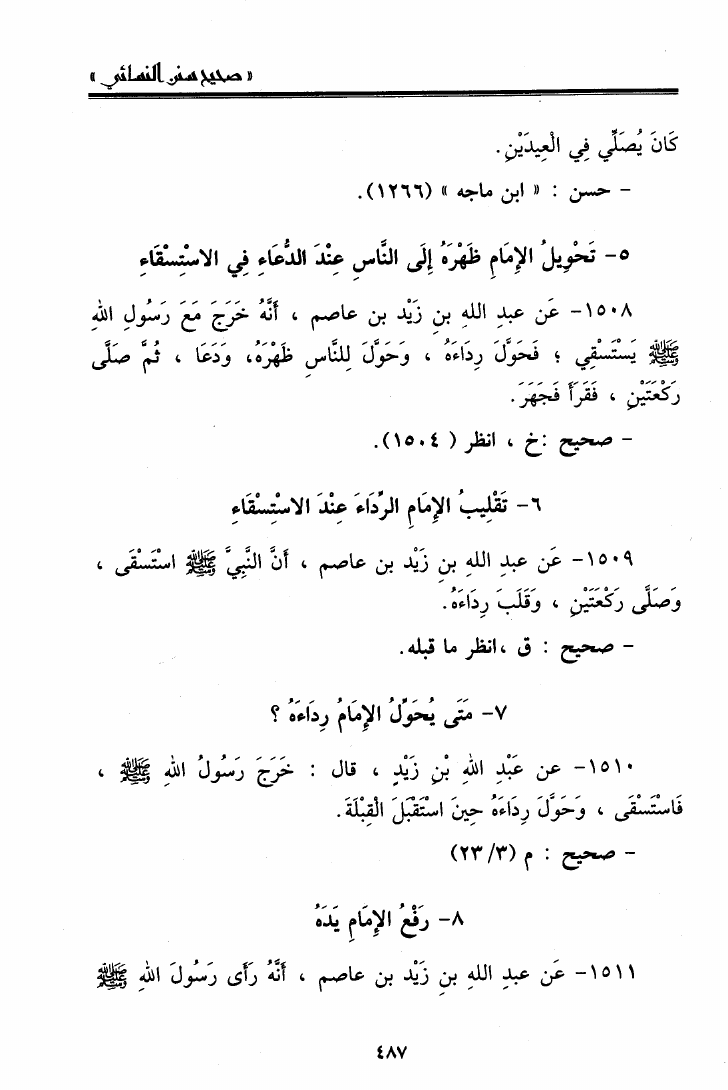 « صحيح سنن النسائي »
كَانَ يُصَلِّي فِي الْعِيدَيْنِ.
– حسن : « ابن ماجه » (١٢٦٦).
٥- تَحْوِيلُ الإِمَامِ ظَهْرَهُ إِلَى النَّاسِ عِنْدَ الدُّعَاءِ فِي الاسْتِسْقَاءِ
١٥٠٨- عَن عبدِ اللهِ بنِ زَيْد بن عاصم ، أَنَّهُ خَرَجَ مَعَ رَسُولِ اللهِ
ﷺ يَسْتَسْقِي ؛ فَحَوَّلَ رِدَاءَهُ ، وَحَوَّلَ لِلنَّاسِ ظَهْرَهُ، وَدَعَا ، ثُمَّ صَلَّى
رَكْعَتَيْنِ ، فَقَرَأَ فَجَهَرَ.
– صحيح :خ ، انظر ( ١٥٠٤).
٦- تَقْلِيبُ الإِمَامِ الرِّدَاءَ عِنْدَ الاسْتِسْقَاءِ
١٥٠٩- عَن عبدِ اللهِ بنِ زَيْد بن عاصم ، أَنَّ النَّبِيَّ ﷺ اسْتَسْقَى ،
وَصَلَّى رَكْعَتَيْنِ ، وَقَلَبَ رِدَاءَهُ.
– صحيح : ق ،انظر ما قبله.
٧- مَتَى يُحَوِّلُ الإِمَامُ رِدَاءَهُ ؟
١٥١٠- عن عَبْدِ اللهِ بْنِ زَيْدٍ ، قال : خَرَجَ رَسُولُ اللهِ ﷺ ،
فَاسْتَسْقَى ، وَحَوَّلَ رِدَاءَهُ حِينَ اسْتَقْبَلَ الْقِبْلَةَ.
– صحيح : م (٣/ ٢٣)
٨- رَفْعُ الإِمَامِ يَدَهُ
١٥١١- عَن عبدِ اللهِ بنِ زَيْد بن عاصم ، أَنَّهُ رَأَى رَسُولَ اللهِ ﷺ
٤٨٧